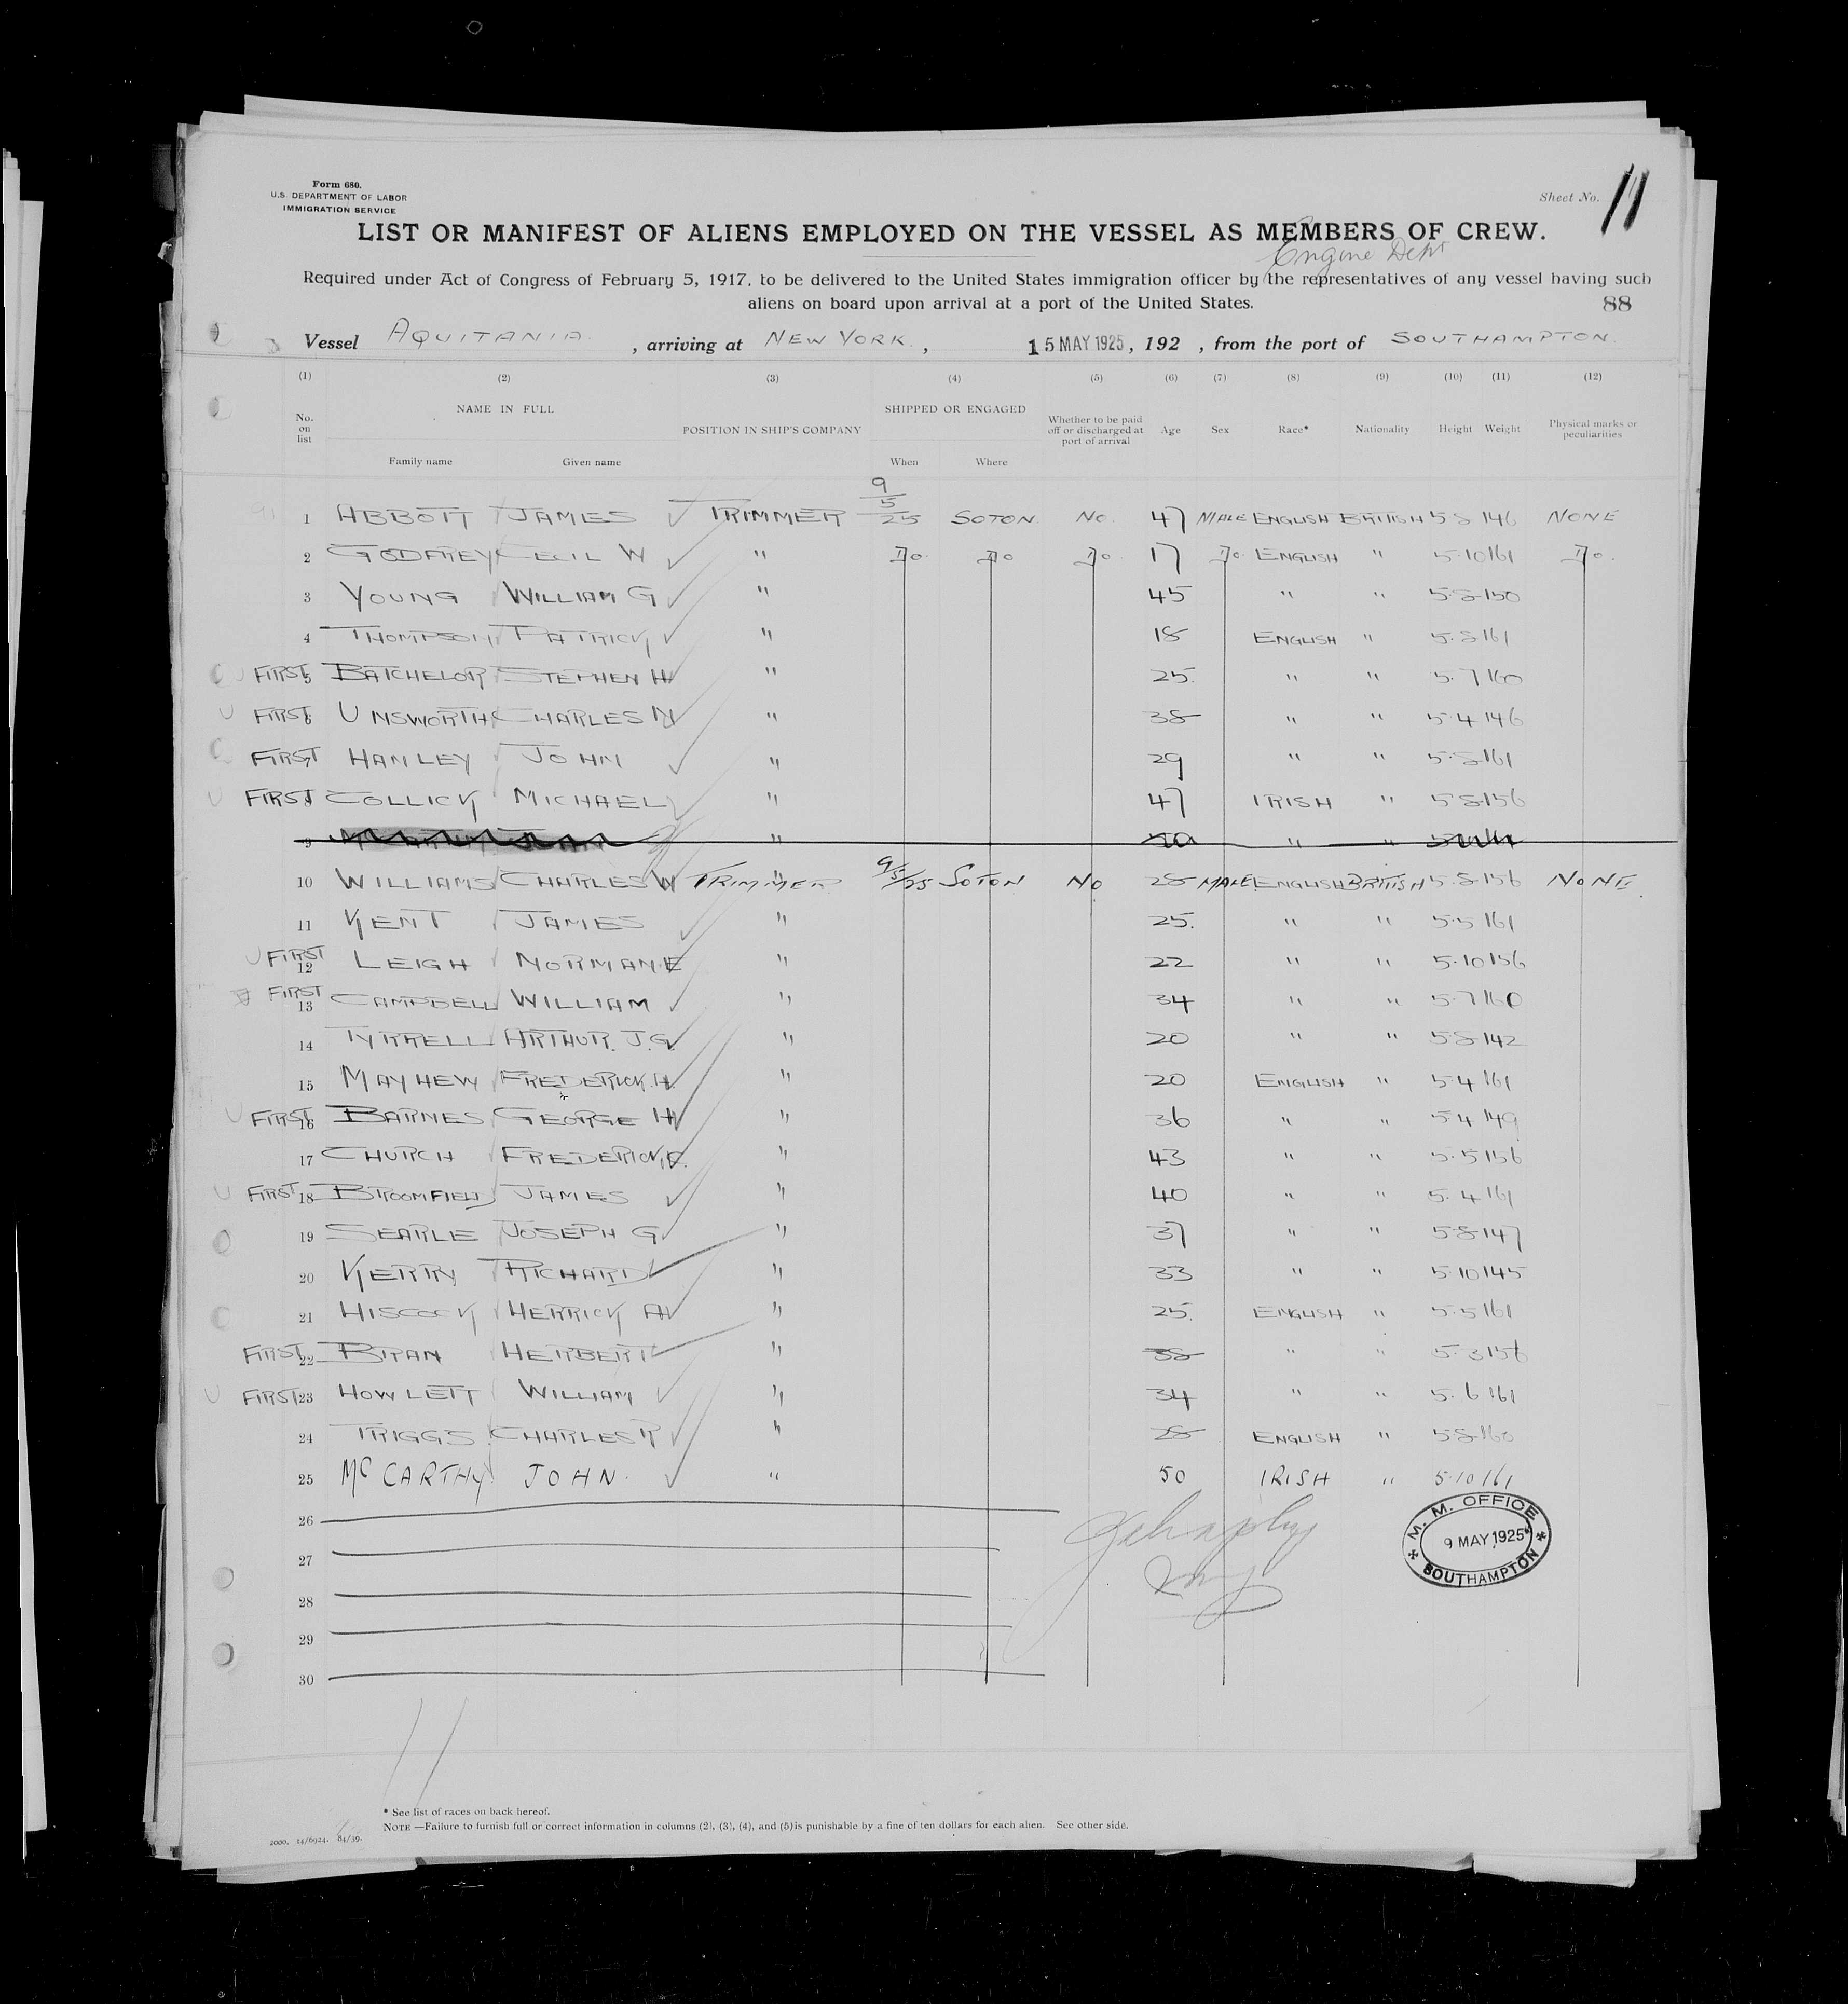 Form 680.
U.S. DEPARTMENT OF LABOR
IMMIGRATION SERVICE
Sheet No. 11
LIST OR MANIFEST OF ALIENS EMPLOYED ON THE VESSEL AS MEMBERS OF CREW.
Engine Dept
Required under Act of Congress of February 5, 1917, to be delivered to the United States immigration officer by the representatives of any vessel having such
aliens on board upon arrival at a port of the United States.
88
Vessel AQUITANIA , arriving at NEW YORK , 15 MAY 1925, 192 , from the port of SOUTHAMPTON
(1) (2) (3) (4) (5) (6) (7) (8) (9) (10) (11) (12)
No. on list NAME IN FULL Family name Given name POSITION IN SHIP'S COMPANY SHIPPED OR ENGAGED When Where Whether to be paid off or discharged at port of arrival Age Sex Race* Nationality Height Weight Physical marks or peculiarities
1 ABBOTT JAMES TRIMMER 9/5/25 SOTON. NO. 47 MALE ENGLISH BRITISH 5 8 146 NONE
2 GODFREY CECIL W " Do. Do Do. 17 Do. ENGLISH " 5.10 161 Do.
3 YOUNG WILLIAM G " 45 " " 5.8 150
4 THOMPSON PATRICK " 18 ENGLISH " 5.8 161
FIRST 5 BATCHELOR STEPHEN H " 25. " " 5.7 160
FIRST 6 UNSWORTH CHARLES N " 38 " " 5.4 146
FIRST 7 HANLEY JOHN " 29 " " 5.8 161
FIRST 8 COLLICK MICHAEL " 47 IRISH " 5.8 156
9 " " "
10 WILLIAMS CHARLES W TRIMMER 9/5/25 SOTON NO 28 MALE ENGLISH BRITISH 5.8 156 NONE.
11 KENT JAMES " 25. " " 5.5 161
FIRST 12 LEIGH NORMAN E " 22 " " 5.10 156
FIRST 13 CAMPBELL WILLIAM " 34 " " 5.7 160
14 TYRRELL ARTHUR. J.G. " 20 " " 5.8 142
15 MAYHEW FREDERICK.H. " 20 ENGLISH " 5.4 161
FIRST 16 BARNES GEORGE H " 36 " " 5.4 149
17 CHURCH FREDERICK. " 43 " " 5.5 156
FIRST 18 BROOMFIELD JAMES " 40 " " 5.4 161
19 SEARLE JOSEPH G " 37 " " 5.8 147
20 KERRY RICHARD " 33 " " 5.10 145
21 HISCOCK HERRICK A " 25. ENGLISH " 5.5 161
FIRST 22 BRAN HERBERT " 38 " " 5.3 156
FIRST 23 HOWLETT WILLIAM " 34 " " 5.6 161
24 TRIGGS CHARLES R " 28 ENGLISH " 5 8 160
25 McCARTHY JOHN. " 50 IRISH " 5.10 161
26
27
28
29
30
M. M. OFFICE
9 MAY 1925
SOUTHAMPTON
11
* See list of races on back hereof.
NOTE —Failure to furnish full or correct information in columns (2), (3), (4), and (5) is punishable by a fine of ten dollars for each alien. See other side.
2000. 14/6924. 84/39.